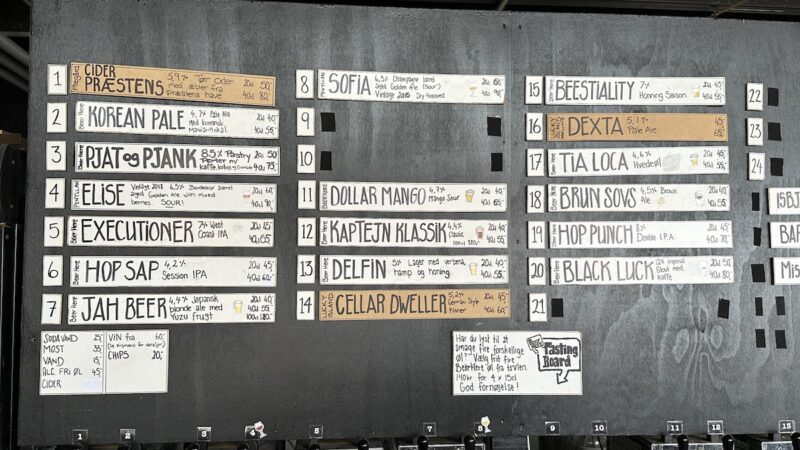 1 CIDER PRÆSTENS
5,9% Tør cider
med æbler fra
præstens have
20cl 50,-
40cl 80,-
2 Beer Here KOREAN PALE
4,7% Pale Ale
40,-
40cl 55,-
3 Beer Here PJAT og PJANK
8,5% Pastry
Porter m/
20cl 50,-
40cl 75,-
4 PENYLLAN ELISE
Vintage 2018 6,5% Bordeaux barrel
aged Golden Ale with mixed
berries. SOUR!
5 Beer Here EXECUTIONER
7% West
Coast IPA
20cl 45,-
40cl 65,-
6 Beer Here HOP SAP
4,2%
Session IPA
20cl 45,-
40cl 60,-
7 Beer Here JAH BEER
4,4% Japansk
blonde ale med
Yuzu frugt
20cl 40,-
40cl 55,-
8 PENYLLAN SOFIA
6,5% Champagne barrel
aged Golden Ale (sour)
Vintage 2018 Dry Hopped
9
10
11 DOLLAR MANGO
4,7%
Mango Sour
20cl 40,-
40cl 65,-
12 Beer Here KAPTEJN KLASSIK
4,4%
Classic
20cl 40,-
40cl 55,-
13 Beer Here DELFIN
5% Lager med verbena,
hamp og honning.
20cl 40,-
40cl 55,-
14 LUCKY ISLAND CELLAR DWELLER
5,2%
German Style
Pilsner
20cl 45,-
40cl 60,-
15 Beer Here BEESTIALITY
7%
Honning Saison
20cl 45,-
40cl 55,-
16 LUCKY ISLAND DEXTA
5,1%
Pale Ale
45,-
65,-
17 Beer Here TIA LOCA
4,6%
Hvedeøl
20cl 45,-
40cl 55,-
18 Beer Here BRUN SOVS
4,5% Brown
Ale
20cl 40,-
40cl 55,-
19 Beer Here HOP PUNCH
8%
Double IPA
20cl 45,-
40cl 70,-
20 Beer Here BLACK LUCK
Imperial
Stout med
Kaffe
21
22
23
24
SODAVAND 25,-
MOST 35,-
VAND 15,-
ALC. FRI ØL 45,-
CIDER
VIN fra 60,-
CHIPS 20,-
Har du lyst til at
smage fire forskellige
øl? Vælg frit fire
BeerHere øl fra tavlen.
140kr for 4 x 15cl
God fornøjelse!
Beer Here Tasting
Board
1 2 3 4 5 6 7 8 9 10 11 12 13